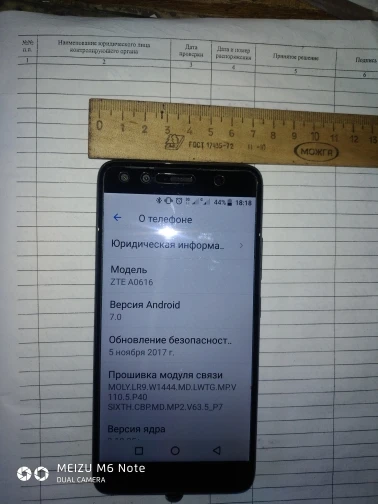 №№ п.п.
Наименование юридического лица контролирующего органа
Дата проверки
Дата и номер распоряжения
Принятое решение
Подпись
1 2 3 4 5 6
0 1 2 3 4 5 6 7 8 9 10 11 12 13
ГОСТ 17435-72
44% 18:18
О телефоне
Юридическая информа..
Модель
ZTE A0616
Версия Android
7.0
Обновление безопасност..
5 ноября 2017 г.
Прошивка модуля связи
MOLY.LR9.W1444.MD.LWTG.MP.V
110.5.P40
SIXTH.CBP.MD.MP2.V63.5_P7
Версия ядра
MEIZU M6 Note
DUAL CAMERA